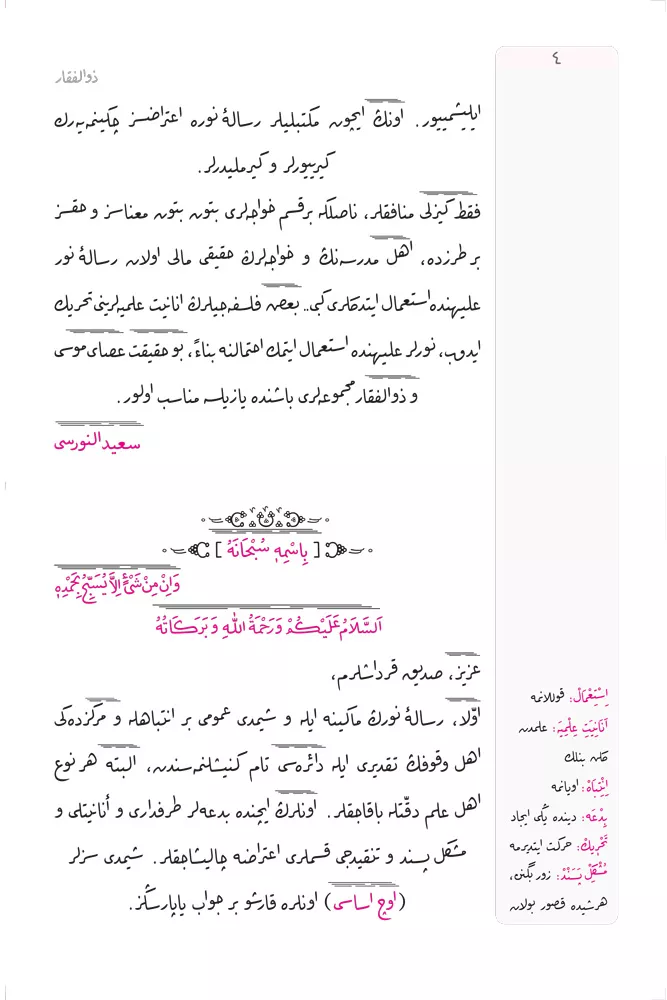 ٤
ذوالفقار
ايليشمييور. اونڭ ايچون مكتبليلر رسالهٔ نوره اعتراضسز چكينمه‌يه‌رك
كيرييورلر و كيرمليدرلر.
فقط كيزلى منافقلر، ناصلكه برقسم خواجه‌لرى بتون بتون معناسز و حقسز
بر طرزده، اهل مدرسه‌نڭ و خواجه‌لرڭ حقيقى مالى اولان رسالهٔ نور
عليهنده استعمال ايتدكلرى كبى.. بعضه فلسفه‌جيلرڭ انانيت علميه‌لرينى تحريك
ايدوب، نورلر عليهنده استعمال ايتمك احتمالنه بناءً، بو حقيقت عصاى موسى
و ذوالفقار مجموعه‌لرى باشنده يازيلسه مناسب اولور.
سعيد النورسى
[ بِاسْمِهٖ سُبْحَانَهُ ]
وَاِنْ مِنْ شَىْءٍ اِلَّا يُسَبِّحُ بِحَمْدِهٖ
اَلسَّلَامُ عَلَيْكُمْ وَرَحْمَةُ اللّٰهِ وَبَرَكَاتُهُ
عزيز، صديق قرداشلرم،
اوّلا، رسالهٔ نورڭ ماكينه ايله و شيمدى عمومى بر انتباهله و مركزده‌كى
اهل وقوفڭ تقديرى ايله دائره‌سى تام كنيشلنمه‌سندن، البته هر نوع
اهل علم دقّتله باقاجقلر. اونلرڭ ايچنده بدعه‌لر طرفدارى و أنانيتلى و
مشكل پسند و تنقيدجى قسملرى اعتراضه چاليشاجقلر. شيمدى سزلر
(اوچ اساسى) اونلره قارشو بر جواب ياپارسڭز.
اِسْتِعْمَالْ: قوللانمه
اَنَانِيَتِ عِلْمِيَه: علمدن
كلن بنلك
اِنْتِبَاهْ: اويانمه
بِدْعَه: دينده يڭى ايجاد
تَحْرِيكْ: حركت ايتديرمه
مُشْكِلْ پَسَنْدْ: زور بگنن،
هرشيده قصور بولان